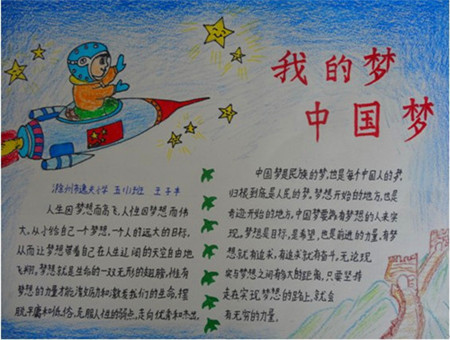 我的梦
中国梦
滁州市逸夫小学 五(1)班 王子丰
人生因梦想而高飞,人性因梦想而伟
大。从小给自己一个梦想,一个人的远大的目标,
从而让梦想带着自己在人生辽阔的天空自由地
飞翔。梦想就是生命的一双无形的翅膀,惟有
梦想的力量才能
我们的生命,摆
脱平庸和低俗,克服人性的弱点,走向优秀和杰出。
中国梦是民族的梦,也是每个中国人的梦。
归根到底是人民的梦。梦想开始的地方,也是
奇迹开始的地方,中国梦靠为有梦想的人来实
现。梦想是目标,是希望,也是前进的力量。有梦
想就有追求,有追求就有奋斗,无论现
实与梦想之间有多大的距离,只要坚持
走在实现梦想的路上,就会
有无穷的力量。